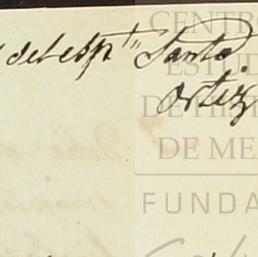 del espt" Santo
Ortiz
CENTRO
ESTUD
DE HI
DE ME
FUNDA